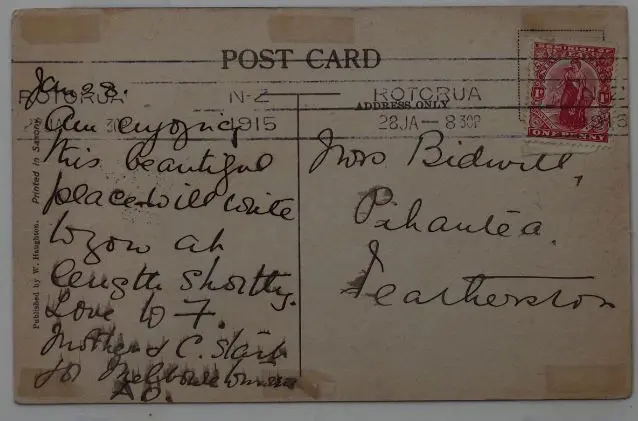 POST CARD
ROTORUA N-Z 1915
ROTORUA
28JA — 8 30P
ADDRESS ONLY
DOMINION OF
NEW ZEALAND
1D 1D
ONE PENNY
Published by W. Haughton. Printed in Saxony.
Jan 28.
Am enjoying
this beautiful
place will write
to you at
length shortly.
Love to F.
Mother & C. start
for Melbourne tomorrow
Mrs Bidwill,
Pihautea.
Featherston